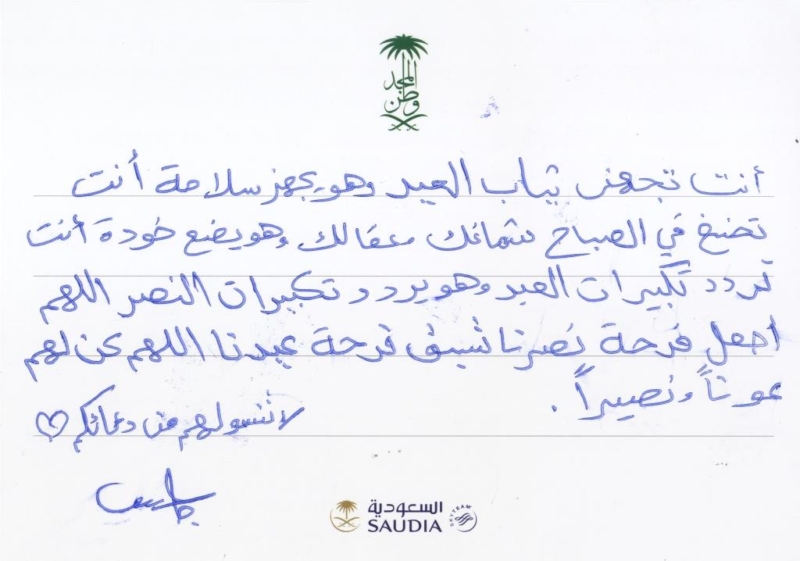 المجد
وطن
أنت تجهز ثياب العيد وهو يجهز سلاحة أنت
تضع في الصباح شماغك وعقالك وهو يضع خوذة أنت
تردد تكبيرات العيد وهو يردد تكبيرات النصر اللهم
اجعل فرحة نصرنا تسبق فرحة عيدنا اللهم كن لهم
عوناً ونصيراً .
لا تنسولهم من دعائكم
السعودية
SAUDIA
SKYTEAM